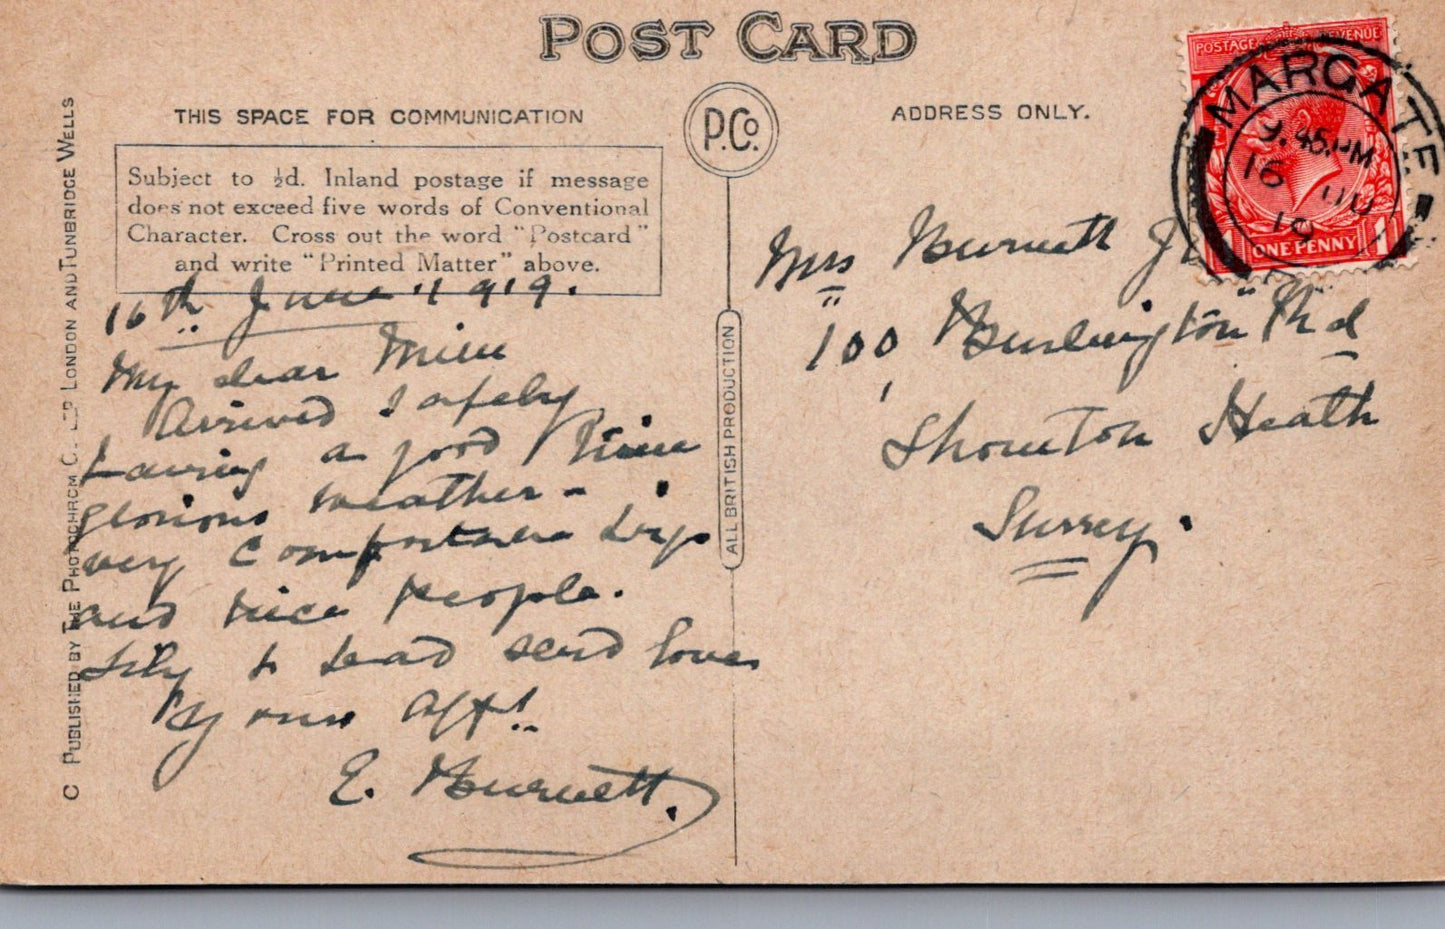 POST CARD
THIS SPACE FOR COMMUNICATION
ADDRESS ONLY.
P.Co.
Subject to ½d. Inland postage if message
does not exceed five words of Conventional
Character. Cross out the word "Postcard"
and write "Printed Matter" above.
16th June 1919.
My dear
Arrived safely
having a good time
glorious weather -
very comfortable digs
and nice people.
Lily & send love
Yours afft.
E. Burnett.
C PUBLISHED BY THE PHOTOCHROM CO. LTD LONDON AND TUNBRIDGE WELLS
ALL BRITISH PRODUCTION
POSTAGE REVENUE
1 ONE PENNY 1
MARGATE
9.45 PM
16 JU
19
Mrs Burnett
100 Burlington Rd
Thornton Heath
Surrey.